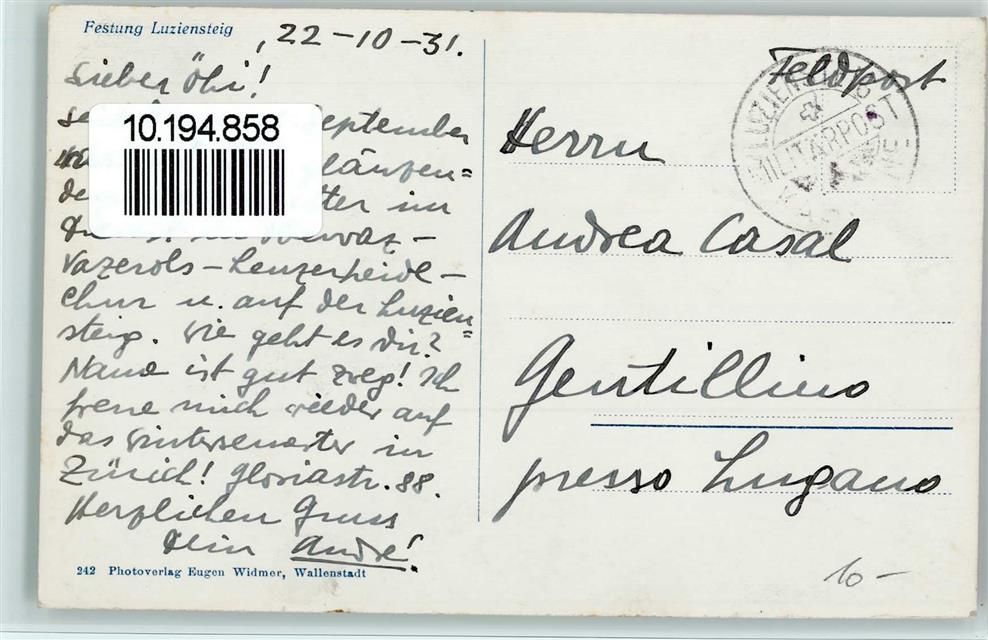 Festung Luziensteig
, 22-10-31.
Lieber Öhi!
10.194.858
September
läufen=
im
Vazerols - Lenzerheide -
Chur u. auf der Luzien=
steig. Wie geht es Dir?
Nana ist gut zweg! Ich
freue mich wieder auf
das Wintersemester in
Zürich! Gloriastr. 88.
Herzlichen Gruss
Dein André!
242 Photoverlag Eugen Widmer, Wallenstadt
Feldpost
MILITÄRPOST
Herrn
Andrea Casal
Gentillino
presso Lugano
10-